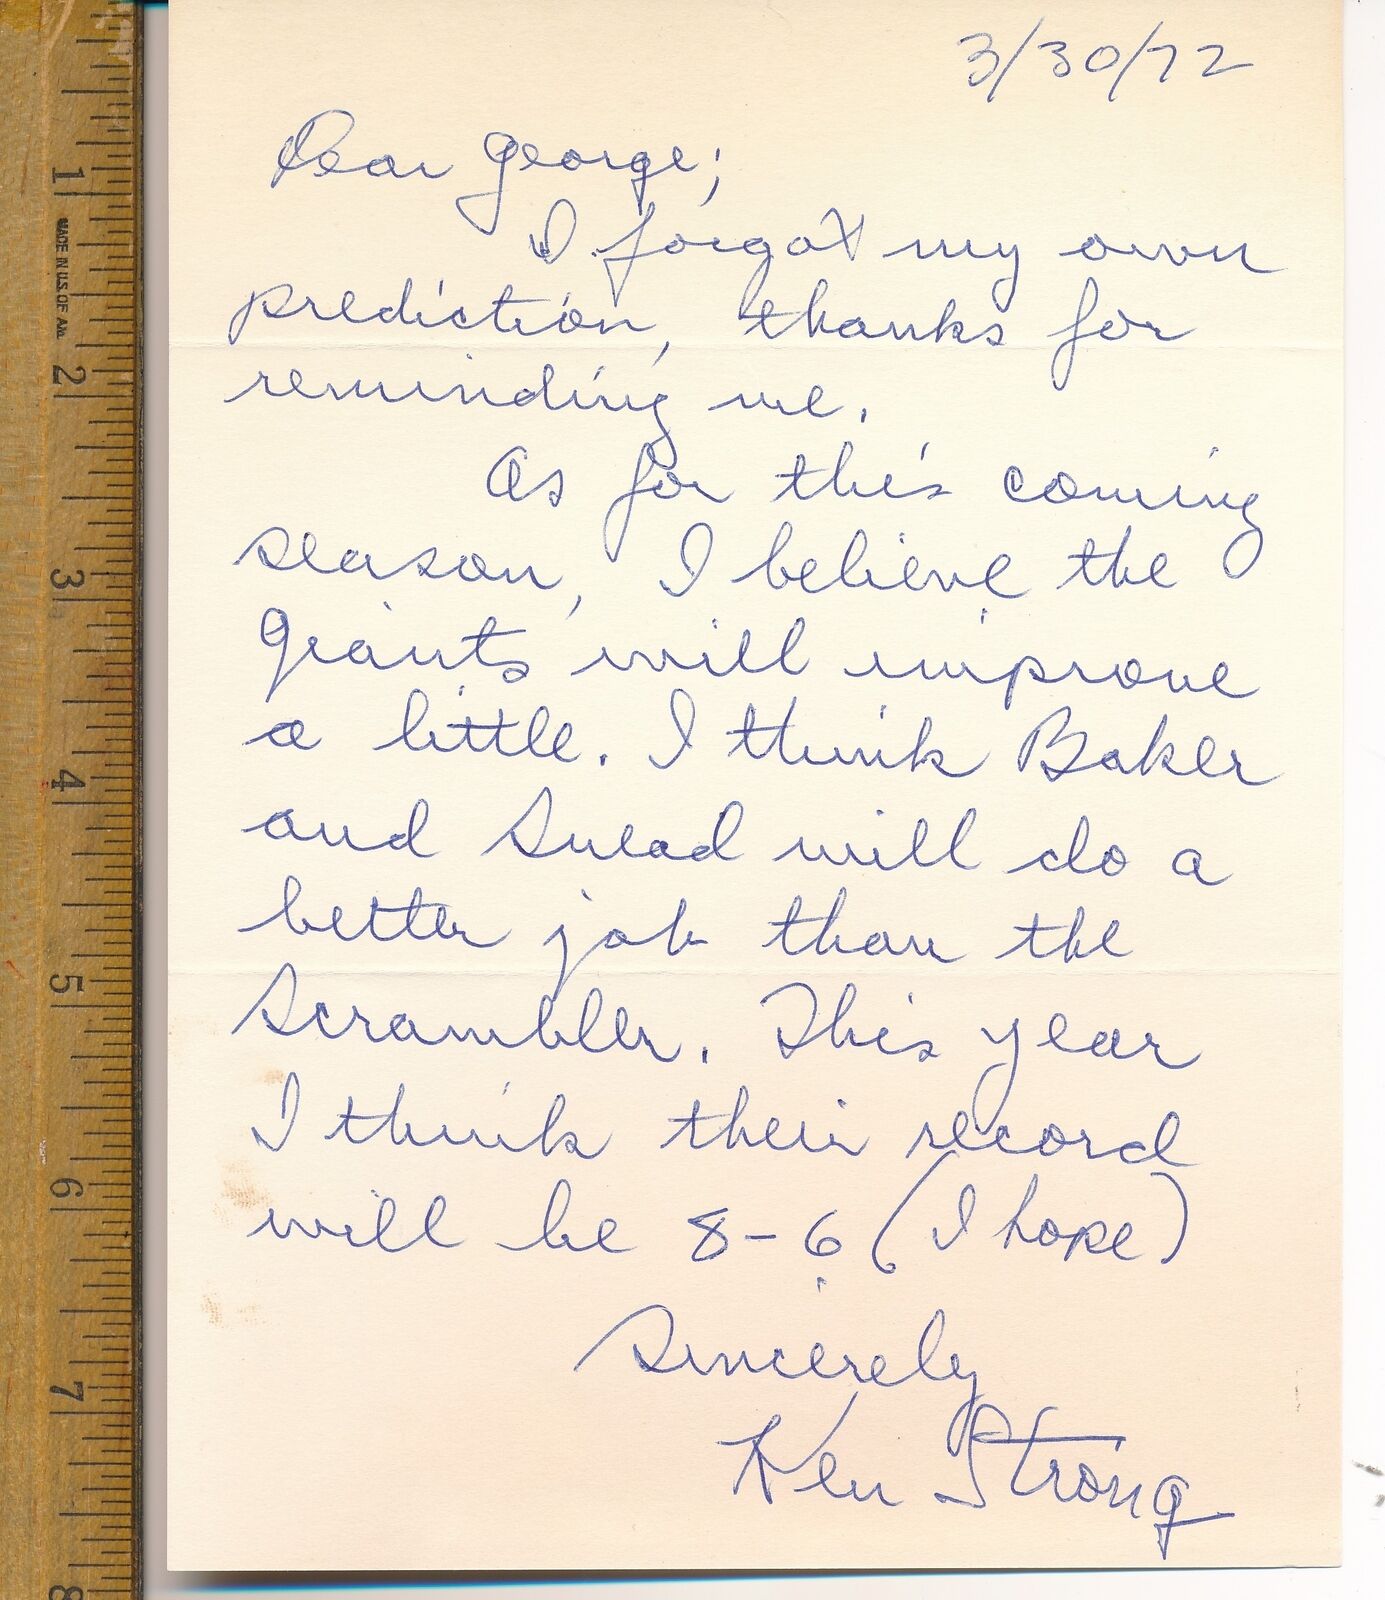 3/30/72
Dear George;
I forgot my own
prediction, thanks for
reminding me.
As for this coming
season, I believe the
Giants will improve
a little. I think Baker
and Snead will do a
better job than the
Scrambler. This year
I think their record
will be 8-6 (I hope)
Sincerely
Ken Strong
1
MADE IN U.S. OF AM.
2
3
4
5
6
7
8